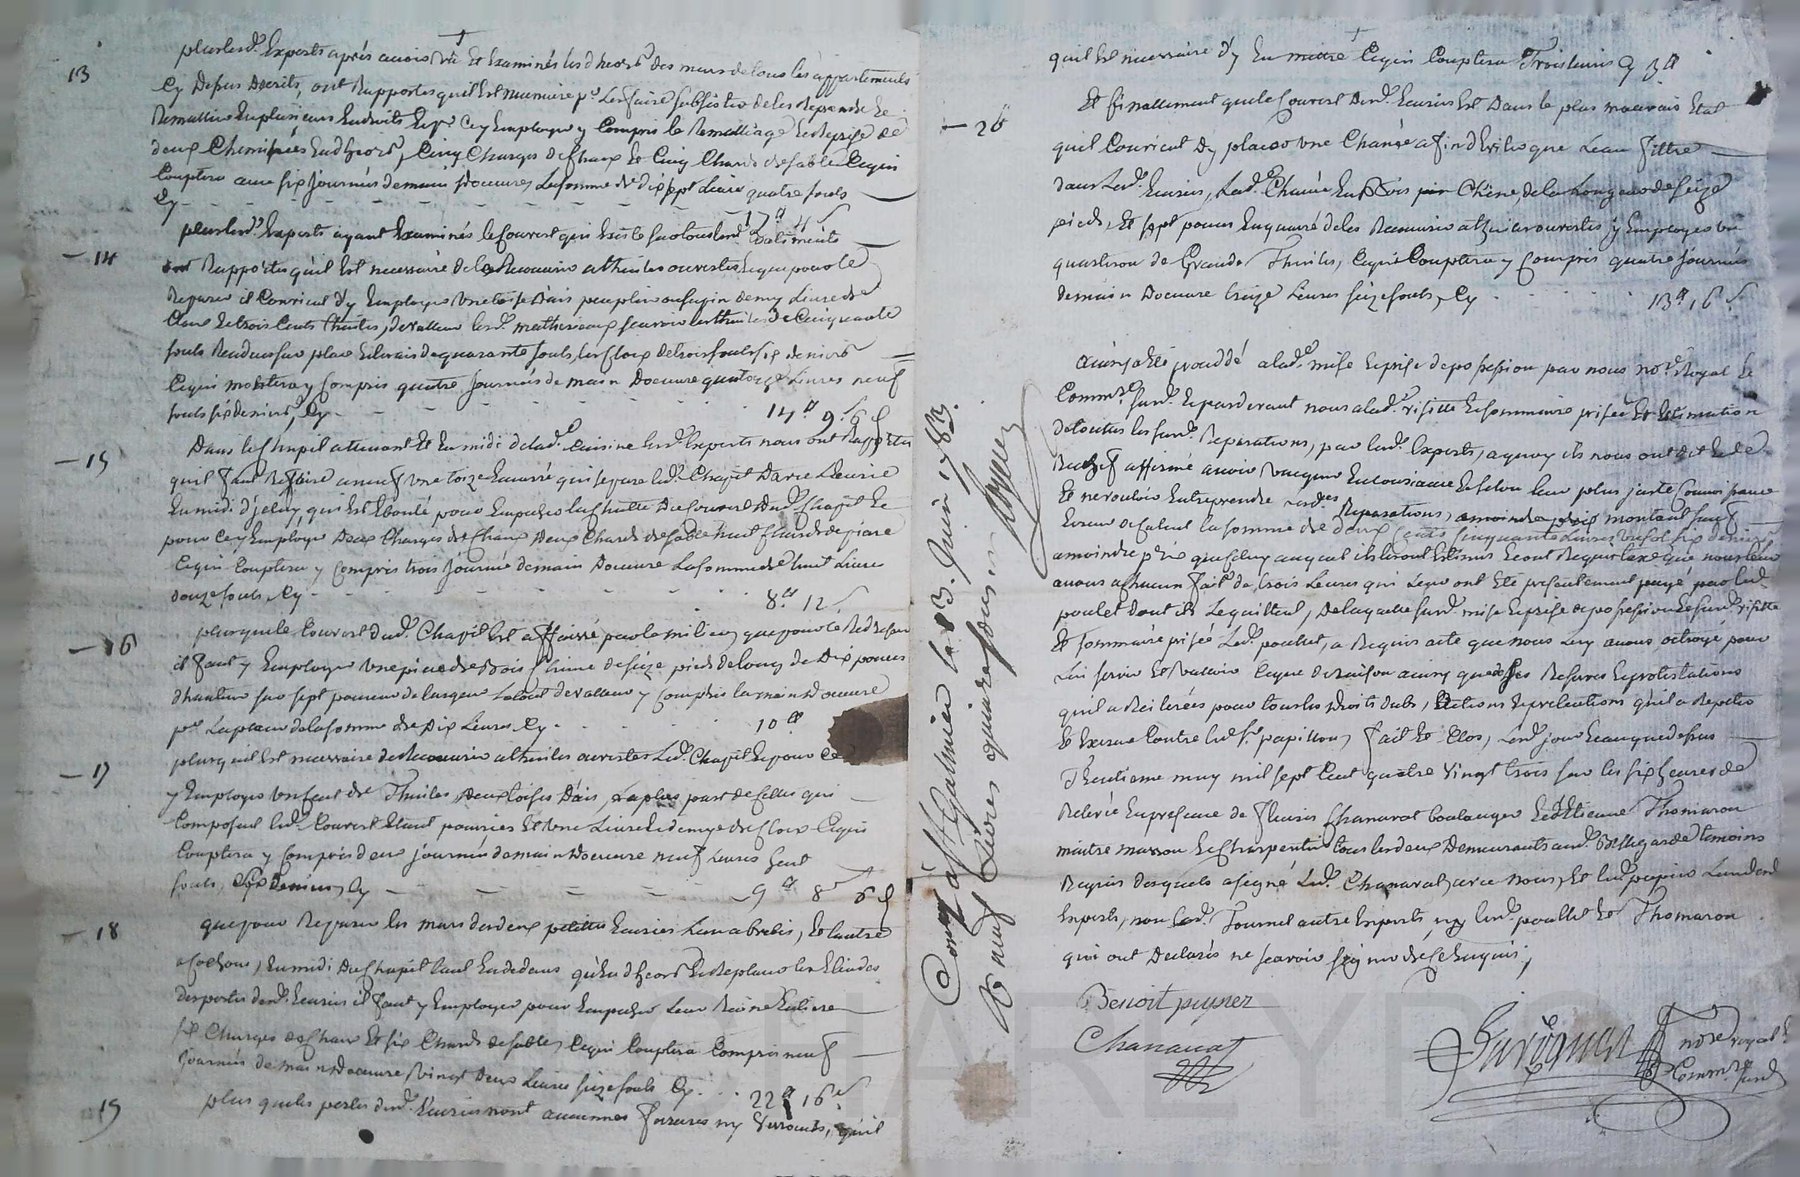 13
plus lesd. Experts après avoir vû Et Examinés les dheors des murs de tous les appartements
Cy Depus Decrits, ont Rapportes quil Est necessaire pr. Les faire subsister de les Reprendre Et
Remailler En plusieurs Endroits Et pr. Cey Employer y Compris le Remaillage Et Reprise de
deux Cheminées En dheors, Cinq Charges de Chaux Et Cinq Chards de sable Cequi
Couptera avec six Journées demain doeuvre, La somme de dix sept Livres quatre souls
Cy - 17 4
14
plus lesd. Experts ayant Examinés le Couvert qui Existe sur tous lesd. Batiments
ont Rapportes quil Est necessaire de le Recouvrir a thuiles ouvertes Et que pour le
Reparer il Convient d'y Employer Une toise Dais peuplier ou sapin demy Livre de
Cloux Et trois Cents thuiles, de valleur lesd. matheriaux scavoir les thuiles de Cinquante
souls Rendues sur place Et les ais de quarante souls, les Cloux de trois souls six deniers
Cequi montera y Compris quatre Journées de main Doeuvre quatorze Livres neuf
souls six deniers, Cy - 14 9 6
15
Dans le Chapit attenant Et En midi de lad. Cuisine lesd. Experts nous ont Rapportes
quil faut Refaire a neuf Une toize En carré qui separe led. Chapit D'avec L'ecurie
En midi d'jcelluy, qui Est Eboulé pour Empecher la Chutte Du Couvert Dud. Chapit Et
pour Cey Employer Deux Charges de Chaux Deux Chards de sable huit Chards de pierre
Cequi Couptera y Compris trois Journé demain Doeuvre La somme de huit Livres
douze souls, Cy - 8 12
16
plus que le Couvert dud. Chapit Est affaissé par le milieu, que pour le Redresser
il faut y Employer Une piece de Bois Chene de seize pieds de Long de Dix pouces
dhauteur sur sept pouces de largeur Le tout de valleur y Compris la main Doeuvre
pr. La placer de la somme de Dix Livres Cy - 10
17
plus quil Est necessaire de Recouvrir a thuiles ouvertes Led. Chapit Et pour Ce
y Employer Un Cent de Thuiles Deux toises Dais, La plus part de Celles qui
Composent led. Couvert Etant pourries Et Une Livre Et demye de Cloux Cequi
Couptera y Compris deux journées demain Doeuvre neuf Livres huit
souls, six deniers, Cy - 9 8 6
18
que pour Reparer les murs des deux petittes Ecuries L'une a brebis, Et l'autre
a Cochons, En midi Du Chapit tant En dedans qu'En dheors Et Replacer les Etindes
des portes desd. Ecuries il faut y Employer pour Empecher Leur Ruine Entiere
six Charges de Chaux Et six Chards de sable, Cequi Couptera Compris neuf
Journées de main Doeuvre Vingt Deux Livres seize souls Cy - 22 16
19
plus que les portes desd. Ecuries n'ont aucunnes ferrures ny verrouils, quil
quil Est necessaire d'y En mettre Cequi Couptera Trois Livres Cy 3
20
Et finallement que le Couvert Desd. Ecuries Est Dans le plus mauvais Etat
quil Convient Dy placer Une Chanée afin d'Eviter que L'eau filtre
dans Lesd. Ecuries, Lad. Chanée En Bois Chêne, de la Longueur de seize
pieds, Et sept pouces En quarré de les Recouvrir a thuiles ouvertes y Employer Un
quarteron de Grandes Thuiles, Cequi Couptera y Compris quatre Journées
demain Doeuvre treize Livres seize souls, Cy - 13 16
Ainsi a Eté procédé a lad. mise Et prise de possession par nous nore. Royal Et
Commre. susd. Et pardevant nous a lad. visitte Et sommaire prisée Et Estimation
de toutes les susd. Reparations, par lesd. Experts, a quoy ils nous ont dit Et De
affirmé avoir vacqué En Consciance Et selon leur plus juste Connoissance
Et ne vouloir Entreprendre lesdes. Reparations, a moindre prix montant sauf
Erreur de Calcul La somme de deux Cents Cinquante Livres
a moindre prix que Celuy auquel ils les ont Estimés Et ont Requis taxe que nous leur
avons a chacun fait de trois Livres qui Leur ont Eté presentement payé par led.
poulet dont ils Le quittent, De laquelle susd. mise Et prise de possession Et susd. visitte
Et sommaire prisée Led. poulet, a Requis acte que nous Luy avons octroyé pour
Lui servir Et valloir Ceque de raison ainsy que de ses Reserves Et protestations
quil a Reiterées pour tous les Droits duts, Actions Et pretentions qu'il a Repeter
Et Exercer Contre led. sr. papillon, fait Et Clos, Lesd. jour Et an que depus
Trentieme may mil sept Cent quatre Vingt trois sur les six heures de
Relevée En presence de Fleuris Chanavat boulanger Et d'Etienne Thomaron
maitre masson Et Charpentier tous les deux Demeurants aud. Bellegarde temoins
Requis desquels a signé Led. Chanavat avec nous, Et led. peysier L'un desd.
Experts, non Led. Journel autre Experts ny led. poullet Et Thomaron
qui ont Declarés ne scavoir signer de ce Enquis,
Benoit peysier
Chanavat
nore royal Et
Commre. susd.
Cont. à St Galmier le 13. Juin 1783.
R neuf Livres quinze sous